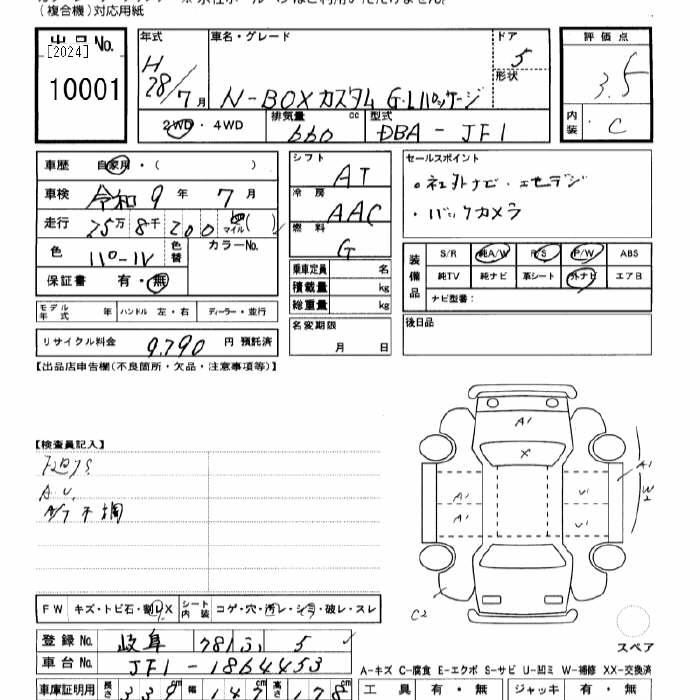 (複合機)対応用紙
出品No.
[2024]
10001
年式
H28/7月
車名・グレード
N-BOXカスタム G・Lパッケージ
ドア
5
形状
評価点
3.5
内装
C
2WD・4WD
排気量
660 cc
型式
DBA-JF1
車歴 自家用・( )
車検 令和9年7月
走行 25万8千200 マイル( )
色 パール 色替 カラーNo.
保証書 有・無
モデル年式 年 ハンドル 左・右 ディーラー・並行
リサイクル料金 9,790円 預託済
シフト AT
冷房 AAC
燃料 G
乗車定員 名
積載量 kg
総重量 kg
名変期限
月 日
セールスポイント
・社外ナビ・エセラジ
・バックカメラ
装備品
S/R 純A/W P/S P/W ABS
純TV 純ナビ 革シート 外ナビ エアB
ナビ型番:
後日品
【出品店申告欄(不良箇所・欠品・注意事項等)】
【検査員記入】
A.U.
A/T不調
A1
X
A1
A1
U1
U1
A1
W2
C2
スペア
FW キズ・トビ石・割レX シート内装 コゲ・穴・汚レ・シミ・破レ・スレ
登録No. 岐阜 581 5
車台No. JF1-1864453
A-キズ C-腐食 E-エクボ S-サビ U-凹ミ W-補修 XX-交換済
車庫証明用 長さ 339cm 幅 147cm 高さ 178cm
工具 有・無 ジャッキ 有・無